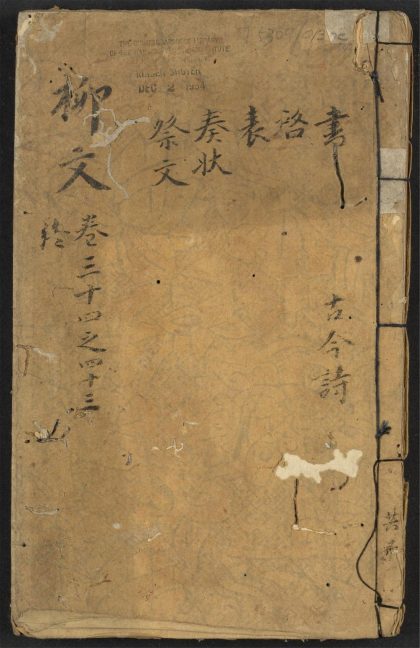 書
啓
表
奏狀
祭文
古今詩
柳文
卷三十四之四十三
終
DEC 2 1954